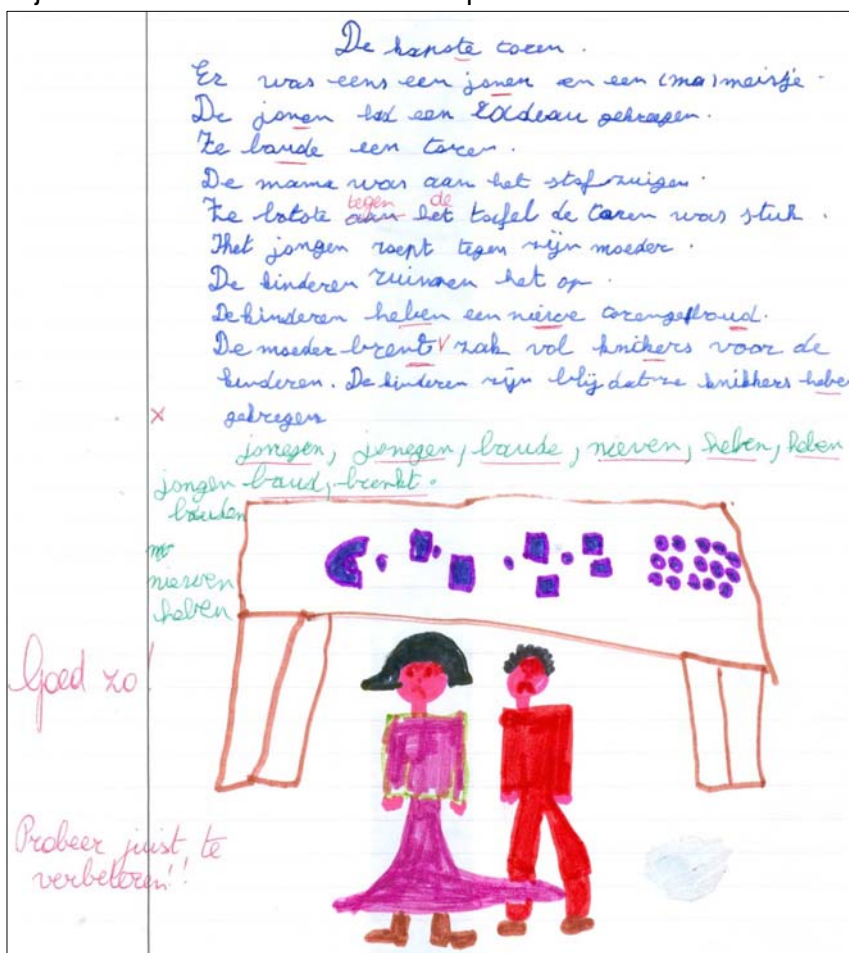 De kapote toren.
Er was eens een jonen en een (ma) meisje.
De jonen had een kadeau gekregen.
Ze baude een toren.
De mama was aan het stofzuigen.
tegen de
Ze botste aan het tafel de toren was stuk.
Het jongen roept tegen zijn moeder.
De kinderen ruimen het op.
De kinderen heben een niewe toren geboud.
De moeder brent V zak vol knikers voor de
kinderen. De kinderen zijn blij dat ze knikkers heben
x gekregen
jonegen, jonegen, baude, nieven, heben, heben
jongen baud, brenkt.
bouden
nieuwen
heben
Goed zo!
Probeer juist te
verbeteren!!